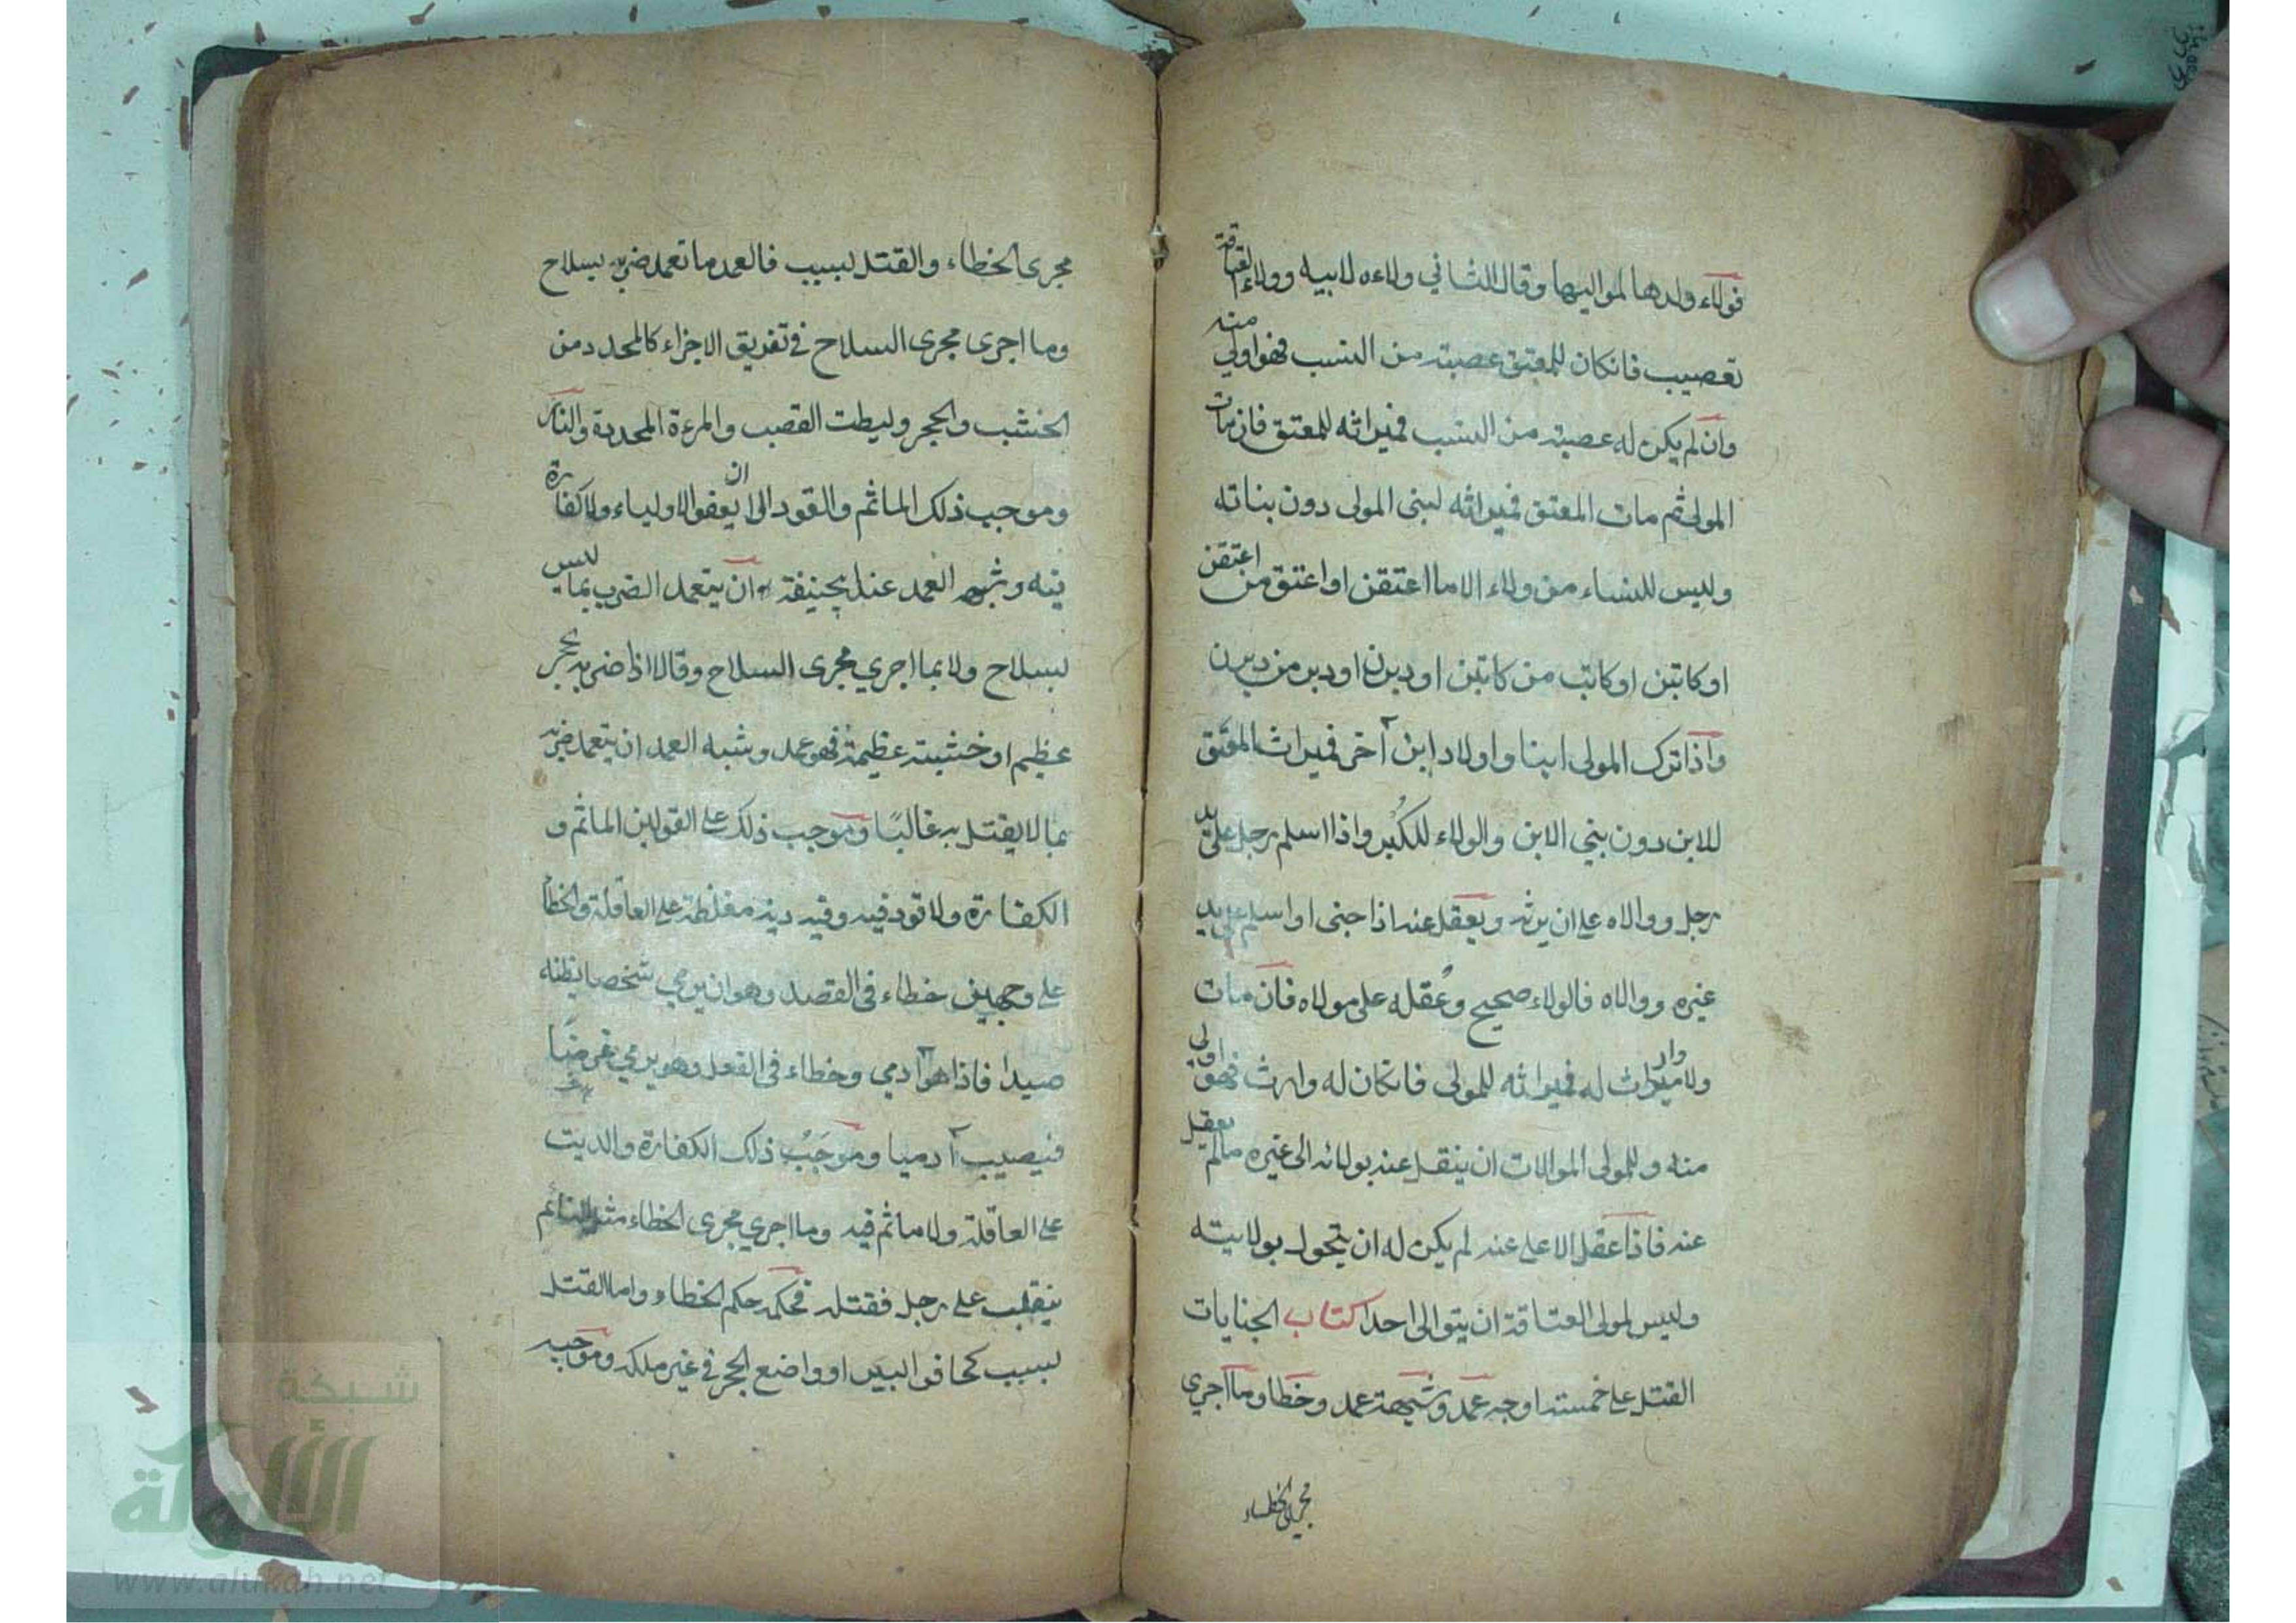 فولاء ولدها لمواليها وقال الثاني ولاءه لابيه وولاء العتاقة
تعصيب فانكان للمعتق عصبة من النسب فهو اولي منه
وان لم يكن له عصبة من النسب فميراثه للمعتق فان مات
المولى ثم مات المعتق فميراثه لبنى المولى دون بناته
وليس للنساء من ولاء الا ما اعتقن او اعتق من اعتقن
او كاتبن او كاتب من كاتبن او دبرن او دبر من دبرن
واذا ترك المولى ابنا واولاد ابن آخر فميراث المعتق
للابن دون بني الابن والولاء للكُبر واذا اسلم رجل على يد
رجل ووالاه على ان يرثه ويعقل عنه اذا جنى او اسلم على يد
غيره ووالاه فالولاء صحيح وعُقله على مولاه فان مات
ولا وارث له فميراثه للمولى فانكان له وارث فهو اولى
منه وللمولى الموالات ان ينقل عنه بولائه الى غيره مالم يعقل
عنه فاذا عقل الاعلى عنه لم يكن له ان يتحول بولايته
وليس لمولى العتاقة ان يتوالى احدا كتاب الجنايات
القتل على خمسته اوجه عمد وشبهة عمد وخطا وما اجرى
مجرى الخطاء
مجرى الخطاء والقتل لسبب فالعمد ما تعمد ضربه بسلاح
وما اجرى مجرى السلاح في تفريق الاجزاء كالمحدد من
الخشب والحجر وليطت القصب والمرءة المحدية والنار
وموجب ذلك الماثم والقود الى ان يعفو الاولياء ولا كفارة
فيه وشبه العمد عند ابيحنيفة ان يتعمد الضرب بما ليس
بسلاح ولا بما اجري مجرى السلاح وقالا اذا ضربه بحجر
عظيم او خشبة عظيمة فهو عمد وشبه العمد ان يتعمد ضربه
بما لا يقتل به غالبًا وموجب ذلك على القولين الماثم و
الكفارة ولا قود فيه وفيه دية مغلظة على العاقلة والخطا
على وجهين خطاء في القصد وهو ان يرمي شخصا يظنه
صيدا فاذا هو آدمي وخطاء فى الفعل وهو يرمي غرضًا
فيصيب آدميا وموجَبُ ذلك الكفارة والديت
على العاقلة ولا ماثم فيه وما اجري مجرى الخطاء مثل النائم
ينقلب على رجل فقتله فحكمه حكم الخطاء واما القتل
بسبب كحافر البير او واضع الحجر في غير ملكه وموجبه
شبكة
الألوكة
www.alukah.net